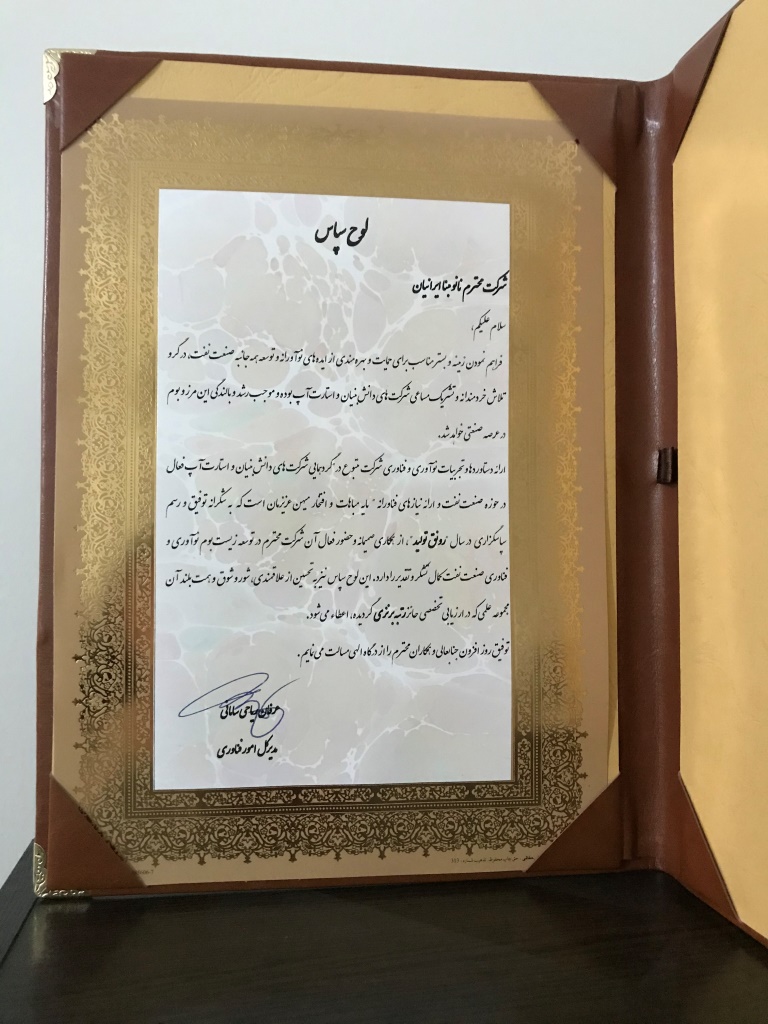 لوح سپاس
شرکت محترم نانو مبنا ایرانیان
سلام علیکم،
فراهم نمودن زمینه و بستر مناسب برای حمایت و بهره مندی از ایده های نوآورانه و توسعه همه جانبه صنعت نفت، در گرو
تلاش خردمندانه و تشریک مساعی شرکت های دانش بنیان و استارت آپ بوده و موجب رشد و بالندگی این مرز و بوم
در عرصه صنعتی خواهد شد.
ارائه دستاوردها و تجربیات نوآوری و فناوری شرکت متبوع در "گردهمایی شرکت های دانش بنیان و استارت آپ فعال
در حوزه صنعت نفت و ارائه نیازهای فناورانه" مایه مباهات و افتخار میهن عزیزمان است که به شکرانه توفیق و رسم
سپاسگزاری در سال "رونق تولید"، از همکاری صمیمانه و حضور فعال آن شرکت محترم در توسعه زیست بوم نوآوری و
فناوری صنعت نفت کمال تشکر و تقدیر را دارد. این لوح سپاس نیز به تحسین از علاقمندی، شور و شوق و همت بلند آن
مجموعه علمی که در ارزیابی تخصصی حائز رتبه برنزی گردیده، اعطاء می شود.
توفیق روز افزون جنابعالی و همکاران محترم را از درگاه الهی مسالت می نمایم.
سامانی
مدیرکل امور فناوری